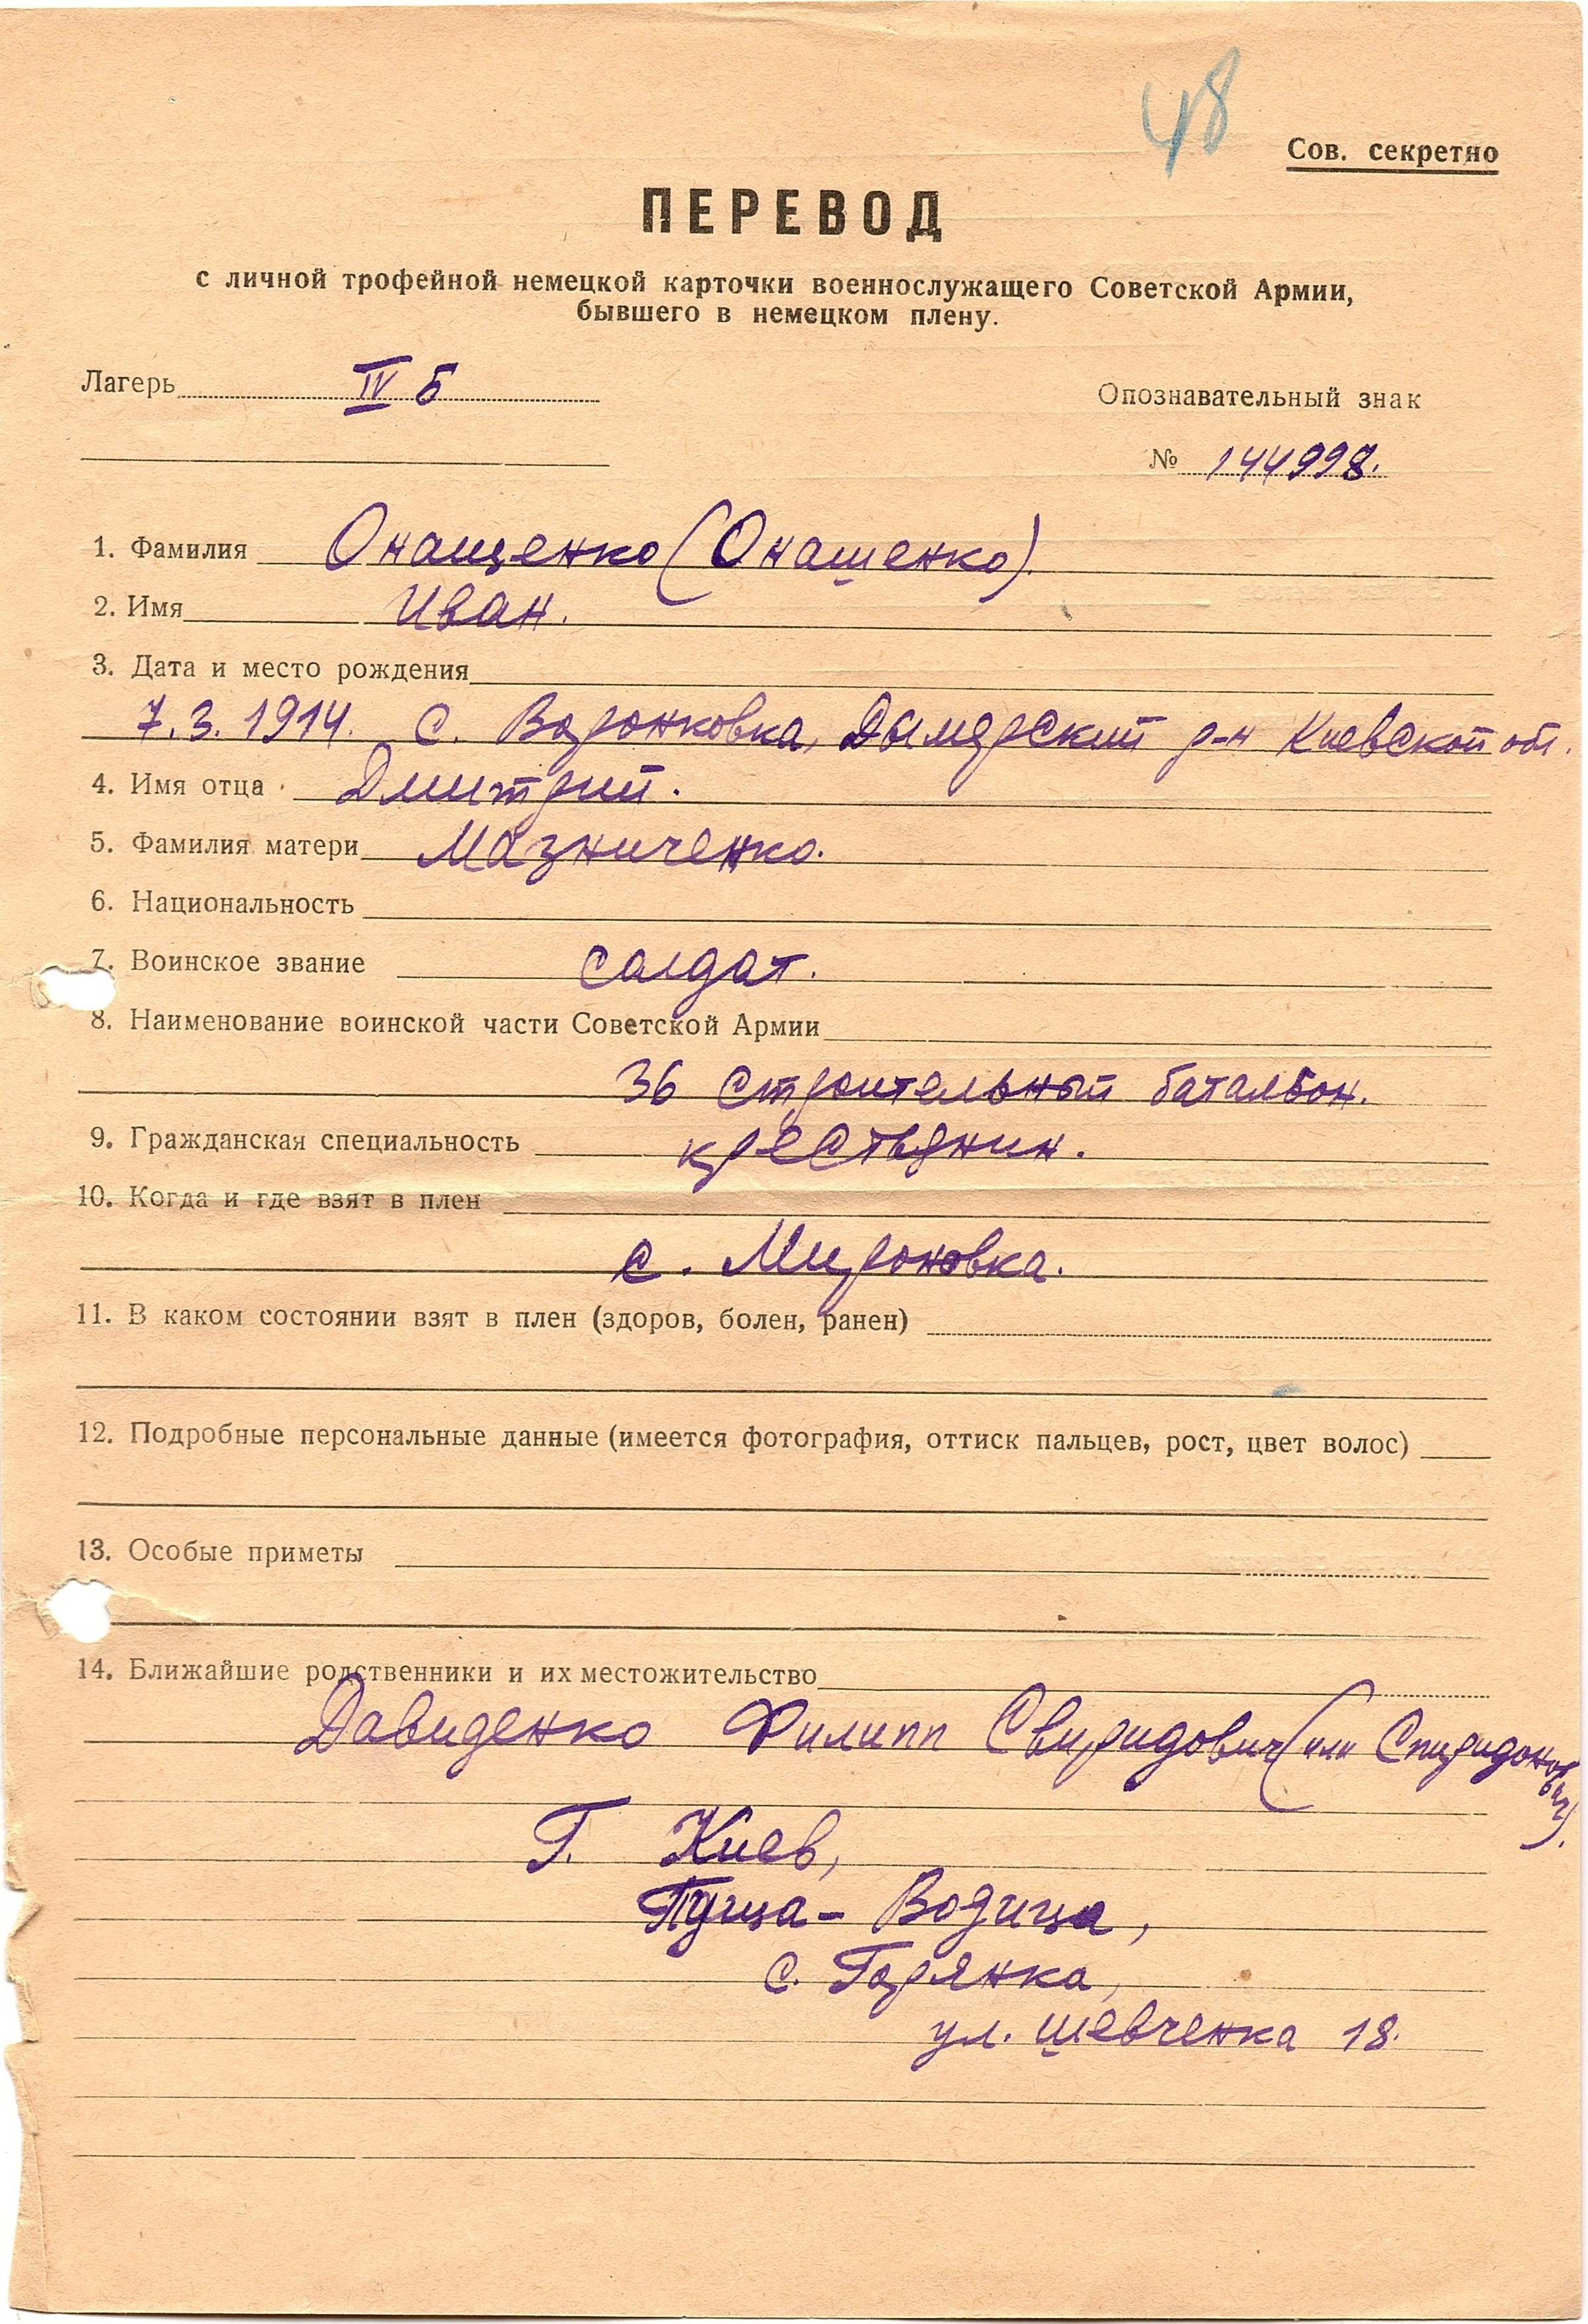 48
Сов. секретно
ПЕРЕВОД
с личной трофейной немецкой карточки военнослужащего Советской Армии,
бывшего в немецком плену.
Лагерь IV Б
Опознавательный знак
№ 144998.
1. Фамилия Онащенко (Онашенко).
2. Имя Иван.
3. Дата и место рождения
7.3.1914. с. Воронковка, Дымерский р-н Киевской обл.
4. Имя отца Дмитрий.
5. Фамилия матери Мазниченко.
6. Национальность
7. Воинское звание солдат.
8. Наименование воинской части Советской Армии
36 строительный батальон.
9. Гражданская специальность крестьянин.
10. Когда и где взят в плен
с. Мироновка.
11. В каком состоянии взят в плен (здоров, болен, ранен)
12. Подробные персональные данные (имеется фотография, оттиск пальцев, рост, цвет волос)
13. Особые приметы
14. Ближайшие родственники и их местожительство
Давиденко Филипп Свиридович (или Спиридонович).
Г. Киев,
Пуща-Водица,
с. Горянка,
ул. Шевченка 18.